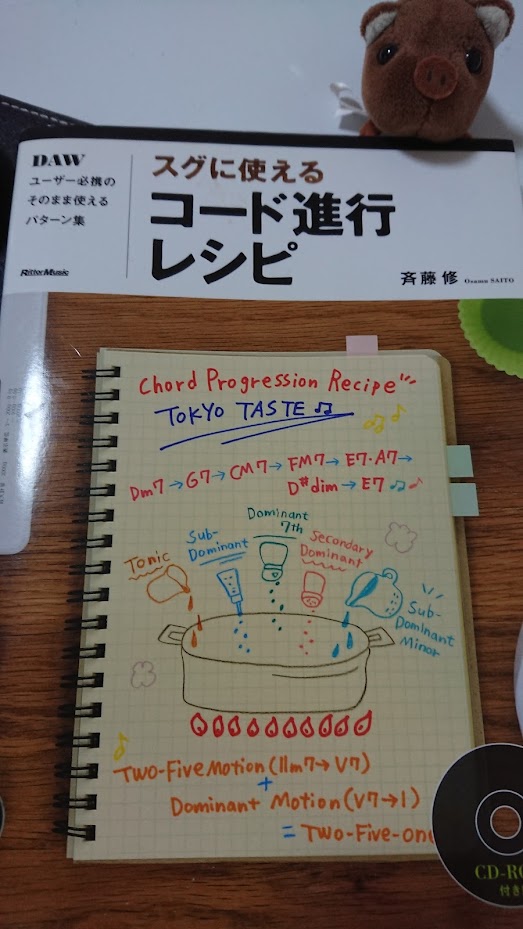 DAW
ユーザー必携の
そのまま使える
パターン集
RittorMusic
スグに使える
コード進行
レシピ
斉藤 修 Osamu SAITO
Chord Progression Recipe
TOKYO TASTE
Dm7→G7→CM7→FM7→E7・A7→
D#dim→E7
Tonic
Sub-
Dominant
Dominant
7th
Secondary
Dominant
Sub-
Dominant
Minor
Two-Five Motion (IIm7→V7)
+
Dominant Motion (V7→I)
= Two-Five-one
CD-RO
付き